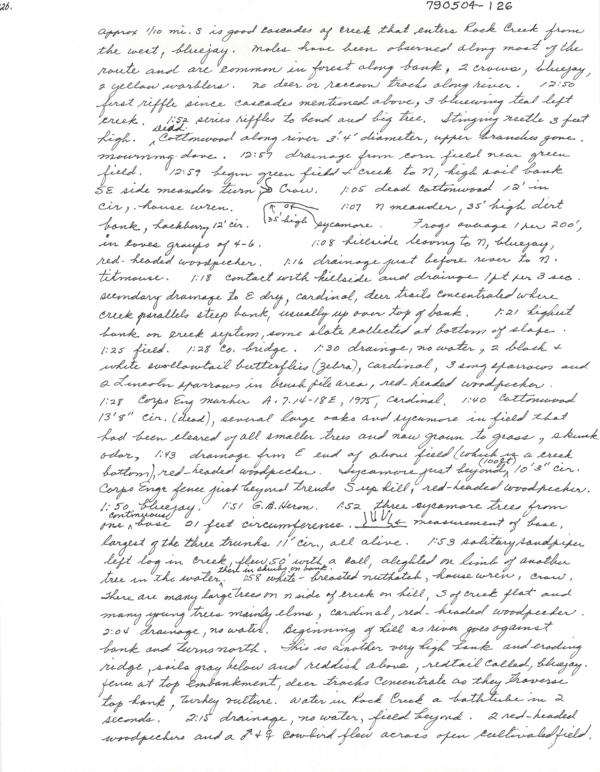 26.
790504-126
approx 1/10 mi. S is good cascades of creek that enters Rock Creek from
the west, bluejay. Moles have been observed along most of the
route and are common in forest along bank, 2 crows, bluejay,
2 yellow warblers. No deer or raccoon tracks along river. 12:50
first riffle since cascades mentioned above, 3 bluewing teal left
creek. 1:52 series riffles to bend and big tree. Stinging nettle 3 feet
high. dead Cottonwood along river 3'4" diameter, upper branches gone.
mourning dove. 12:57 drainage from corn field near green
field. 12:59 begin green field & creek to N, high soil bank
SE side meander turn Crow. 1:05 dead cottonwood 12' in
cir, house wren. 1:07 N meander, 35' high dirt
bank, hackberry 12' cir. 35' high sycamore. Frogs average 1 per 200',
in coves groups of 4-6. 1:08 hillside leaving to N, bluejay,
red-headed woodpecker. 1:16 drainage just before river to N.
titmouse. 1:18 contact with hillside and drainage 1pt per 3 sec.
secondary drainage to E dry, cardinal, deer trails concentrated where
creek parallels steep bank, usually up over top of bank. 1:21 highest
bank on creek system, some slate collected at bottom of slope.
1:25 field. 1:28 Co. bridge. 1:30 drainge, no water, 2 black &
white swallowtail butterflies (zebra), cardinal, 3 song sparrows and
2 Lincoln sparrows in brush pile area, red-headed woodpecker.
1:28 Corps Eng marker A.7.14-18E, 1975, cardinal. 1:40 Cottonwood
13'8" cir. (dead), several large oaks and sycamore in field that
had been cleared of all smaller trees and now grown to grass, skunk
odor, 1:43 drainage frm E end of above field (which is a creek
bottom), red-headed woodpecker. Sycamore just beyond, (100 ft) 10'3" cir.
Corps Engr fence just beyond trends S up hill, red-headed woodpecker.
1:50 bluejay. 1:51 G.B. Heron. 1:52 three sycamore trees from
one continuous base 21 feet circumference. measurement of base,
largest of the three trunks 11' cir., all alive. 1:53 solitary sandpiper
left log in creek, flew 50' with a call, alighted on limb of another
tree in the water, then in shrubs on bank. 1:58 white-breasted nuthatch, house wren, crow.
There are many large trees on N side of creek on hill, S of creek flat and
many young trees mainly elms, cardinal, red-headed woodpecker.
2:04 drainage, no water. Beginning of hill as river goes against
bank and turns north. This is another very high bank and eroding
ridge, soils gray below and reddish above, redtail called, bluejay.
fence at top embankment, deer tracks concentrate as they traverse
top bank, turkey vulture. Water in Rock Creek a bathtub in 2
seconds. 2:15 drainage, no water, field beyond. 2 red-headed
woodpeckers and a ♂ & ♀ cowbird flew across open cultivated field.